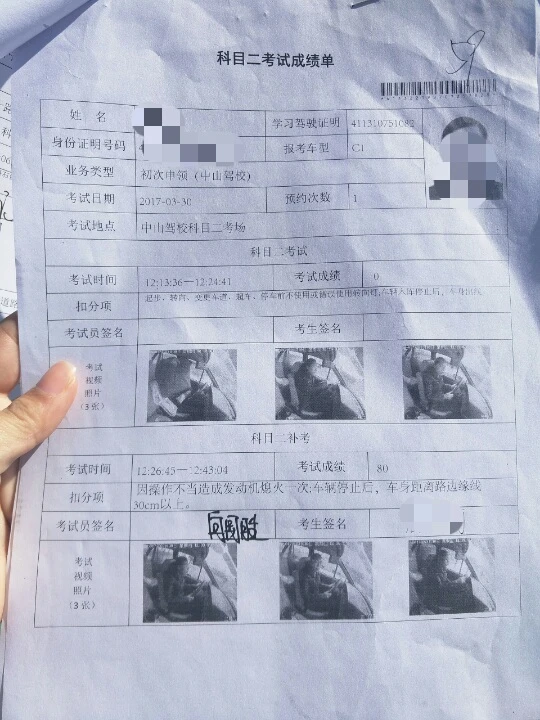 科目二考试成绩单
姓 名 学习驾驶证明 411310751082
身份证明号码 报考车型 C1
业务类型 初次申领 (中山驾校)
考试日期 2017-03-30 预约次数 1
考试地点 中山驾校科目二考场
科目二考试
考试时间 12:13:36—12:24:41 考试成绩 0
扣分项 起步、转向、变更车道、超车、停车前不使用或错误使用转向灯;车辆入库停止后,车身出线
考试员签名 考生签名
考试
视频
照片
(3张)
科目二补考
考试时间 12:26:45—12:43:04 考试成绩 80
扣分项 因操作不当造成发动机熄火一次;车辆停止后,车身距离路边缘线
30cm以上。
考试员签名 考生签名
考试
视频
照片
(3张)